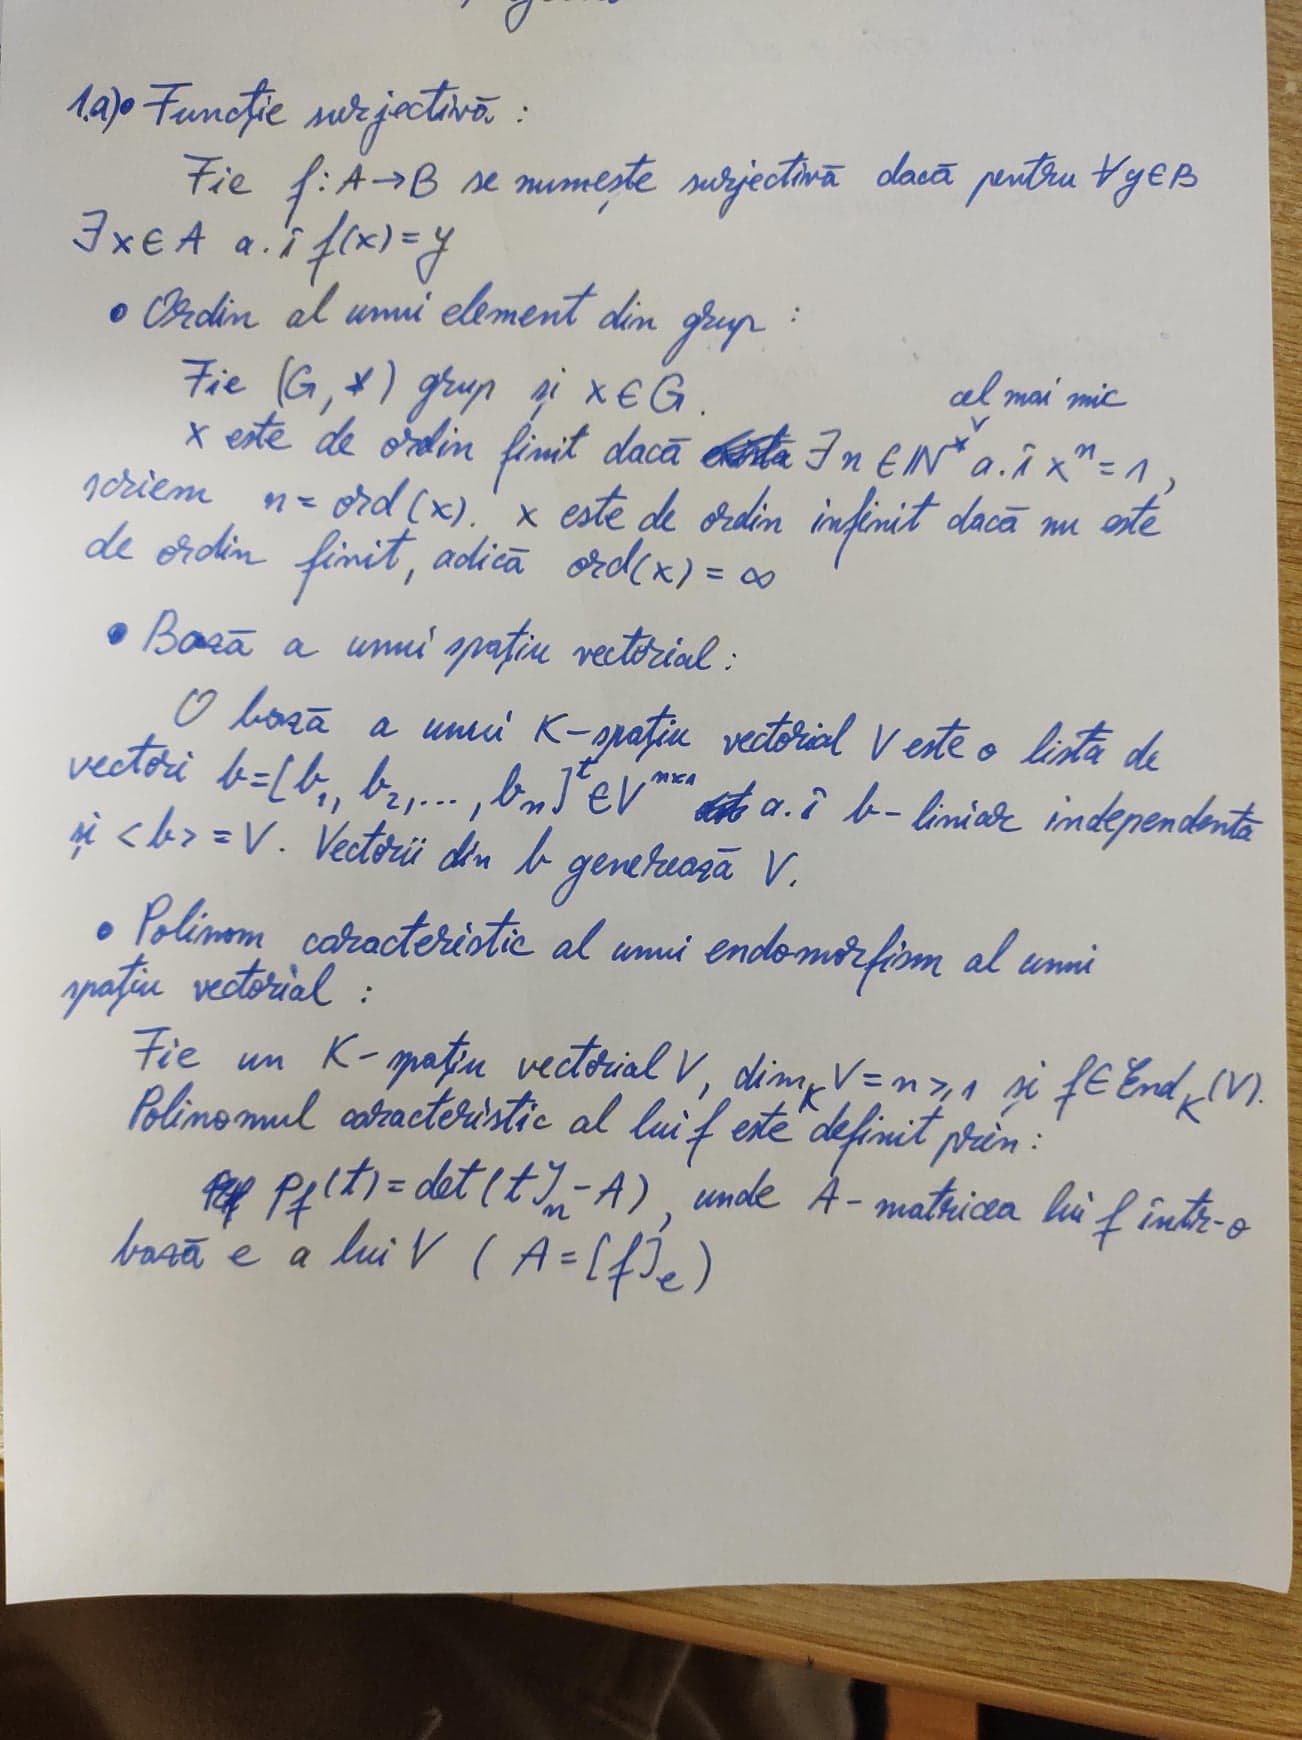 1.a)• Funcție surjectivă :
Fie f: A→B se numește surjectivă dacă pentru ∀y∈B
∃x∈A a. î f(x)=y
• Ordin al unui element din grup :
Fie (G, *) grup și x∈G.
cel mai mic
x este de ordin finit dacă ∃n∈ℕ* a. î xⁿ=1,
scriem n=ord(x). x este de ordin infinit dacă nu este
de ordin finit, adică ord(x)=∞
• Bază a unui spațiu vectorial :
O bază a unui K-spațiu vectorial V este o listă de
vectori b=[b₁, b₂,..., bₙ]ᵗ∈Vⁿˣ¹ a. î b-liniar independentă
și <b>=V. Vectorii din b generează V.
• Polinom caracteristic al unui endomorfism al unui
spațiu vectorial :
Fie un K-spațiu vectorial V, dim_K V=n≥1 și f∈End_K(V).
Polinomul caracteristic al lui f este definit prin :
P_f(t)=det(tIₙ-A), unde A-matricea lui f într-o
bază e a lui V (A=[f]ₑ)